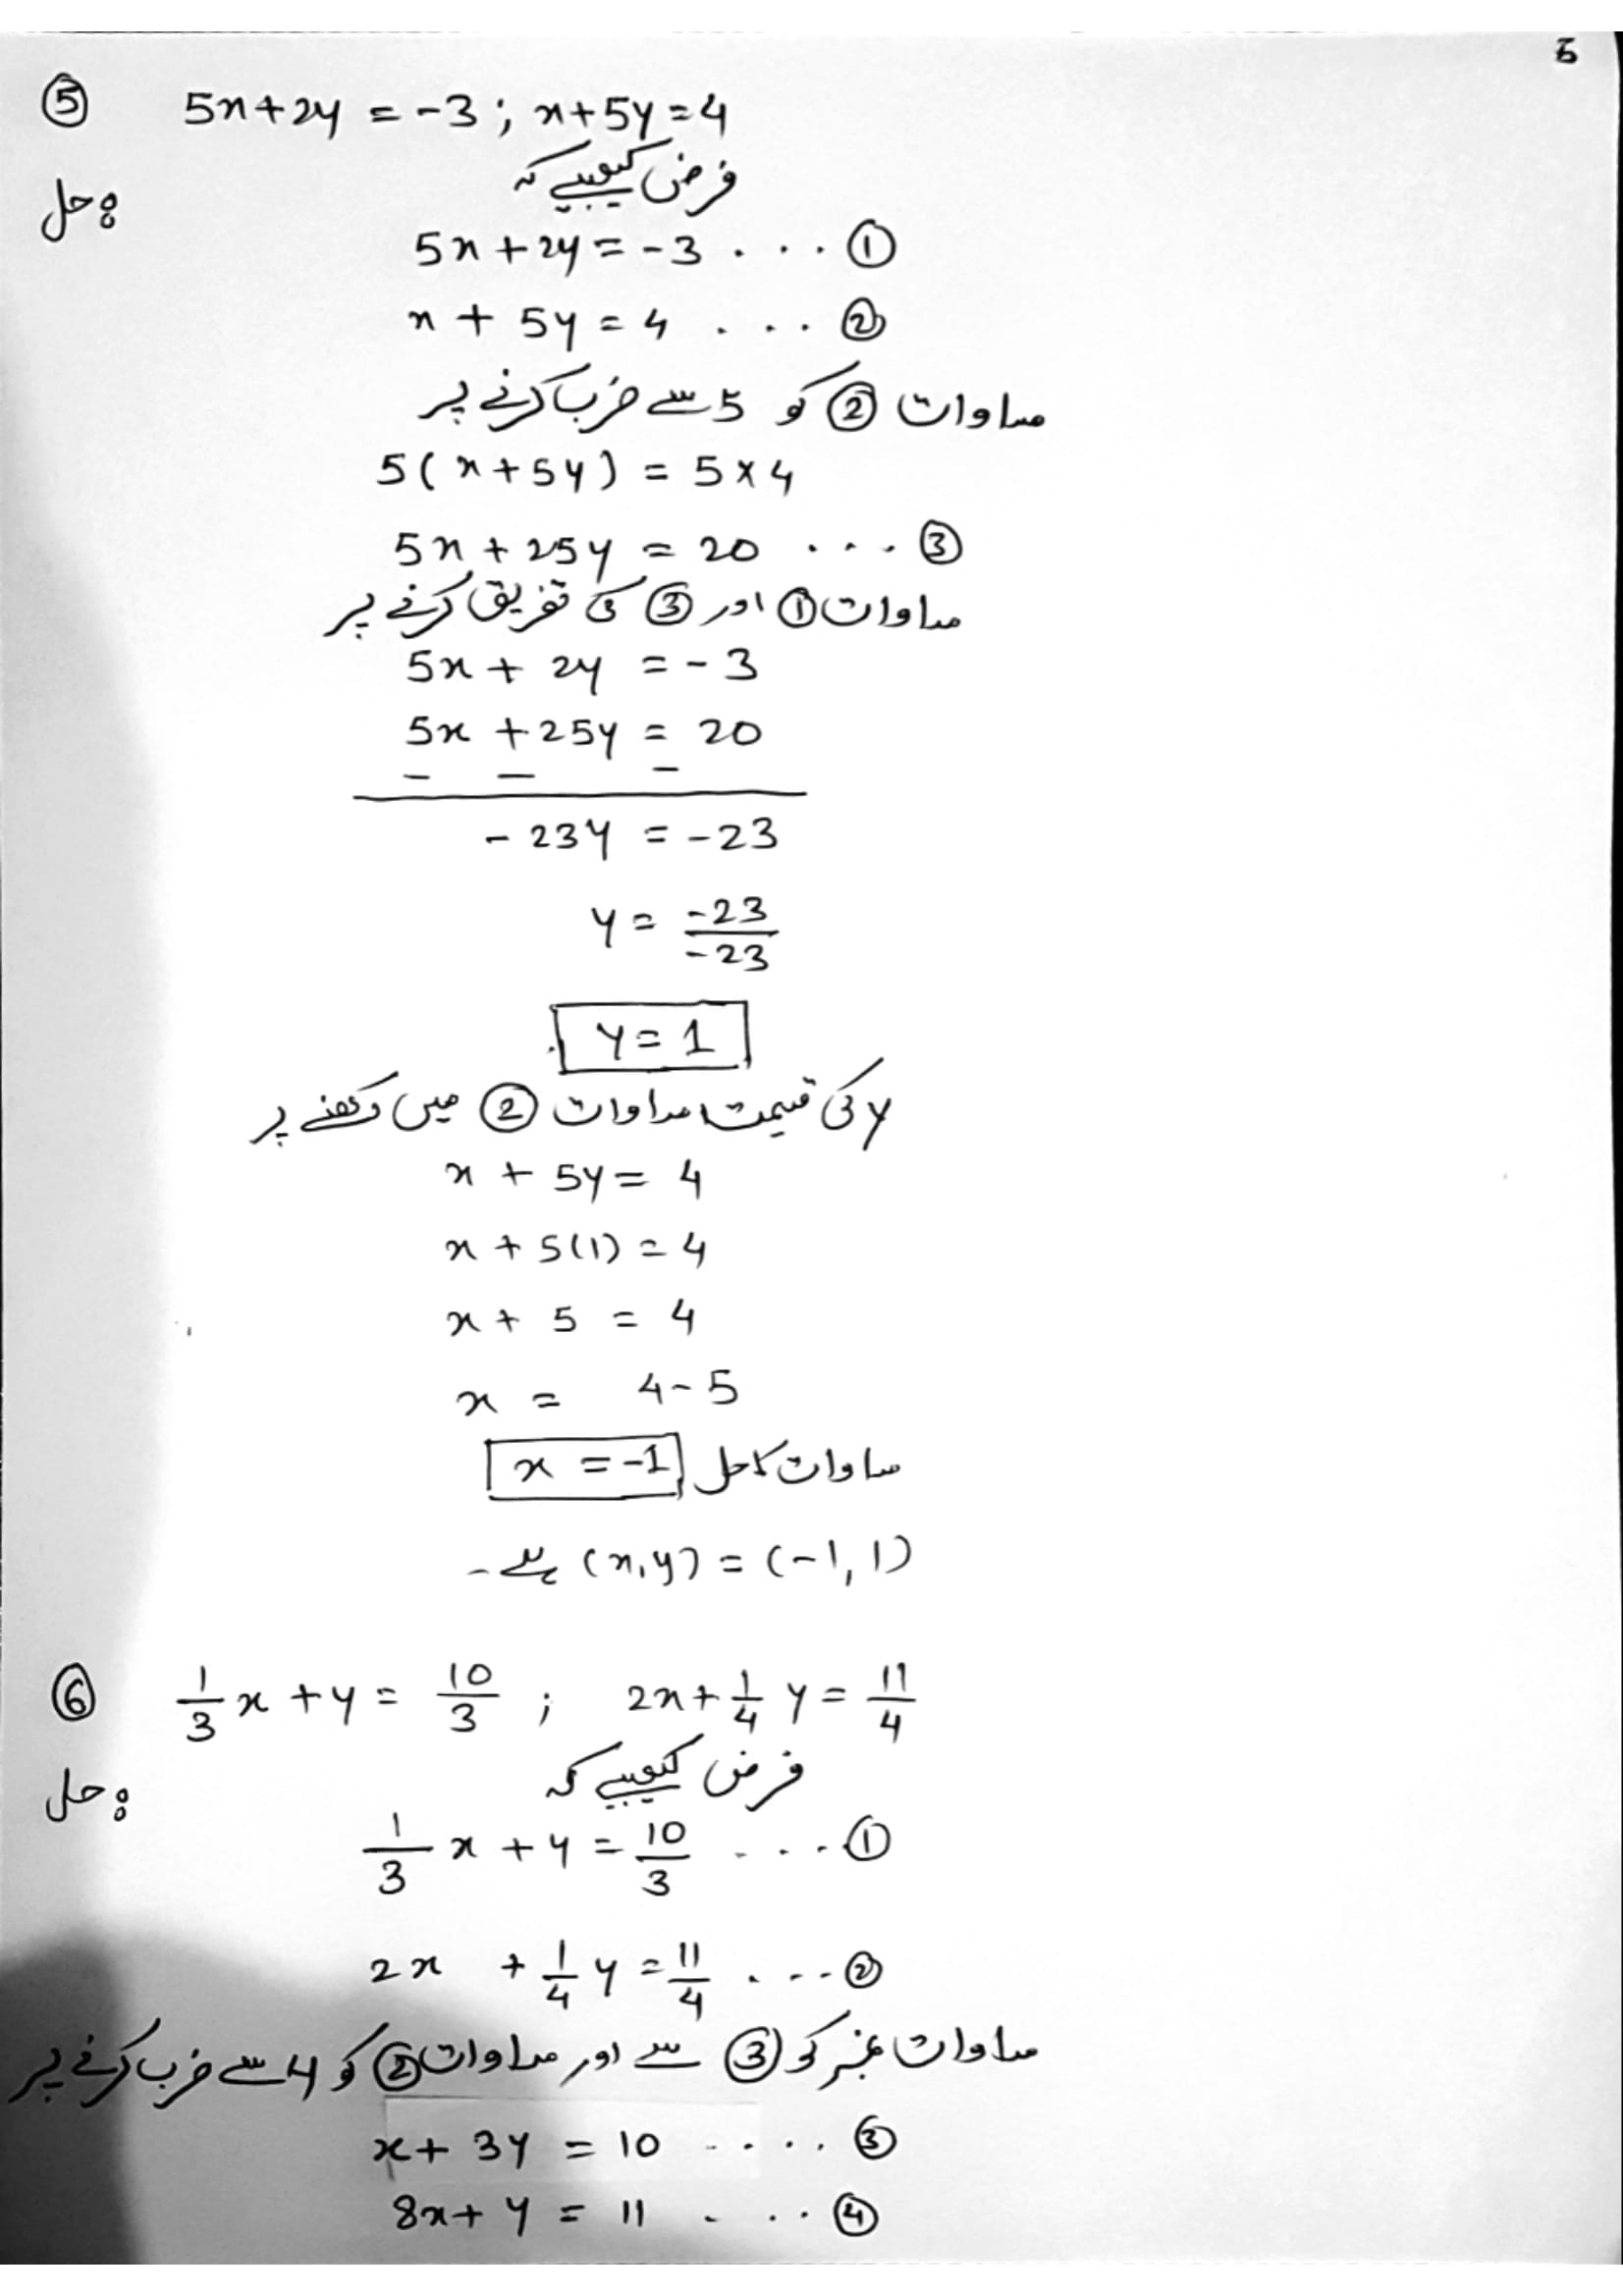 5
⑤ 5x+2y = -3 ; x+5y=4
فرض کیجیے کہ
حل:
5x + 2y = -3 . . . . ①
x + 5y = 4 . . . . ②
مساوات ② کو 5 سے ضرب کرنے پر
5(x+5y) = 5×4
5x + 25y = 20 . . . . ③
مساوات ① اور ③ کی تفریق کرنے پر
5x + 2y = -3
5x + 25y = 20
− − −
-23y = -23
y = -23/-23
y = 1
y کی قیمت مساوات ② میں رکھنے پر
x + 5y = 4
x + 5(1) = 4
x + 5 = 4
x = 4-5
x = -1 مساوات کا حل
(x,y) = (-1, 1) ہے -
⑥ 1/3 x + y = 10/3 ; 2x + 1/4 y = 11/4
فرض کیجیے کہ
حل:
1/3 x + y = 10/3 . . . . ①
2x + 1/4 y = 11/4 . . . . ②
مساوات کو ③ سے اور مساوات ② کو 4 سے ضرب کرنے پر
x + 3y = 10 . . . . . ③
8x + y = 11 . . . ④